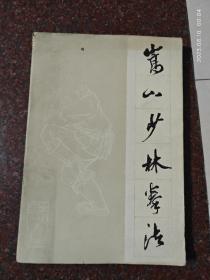 嵩山少林拳法
2023.08.10 00:04